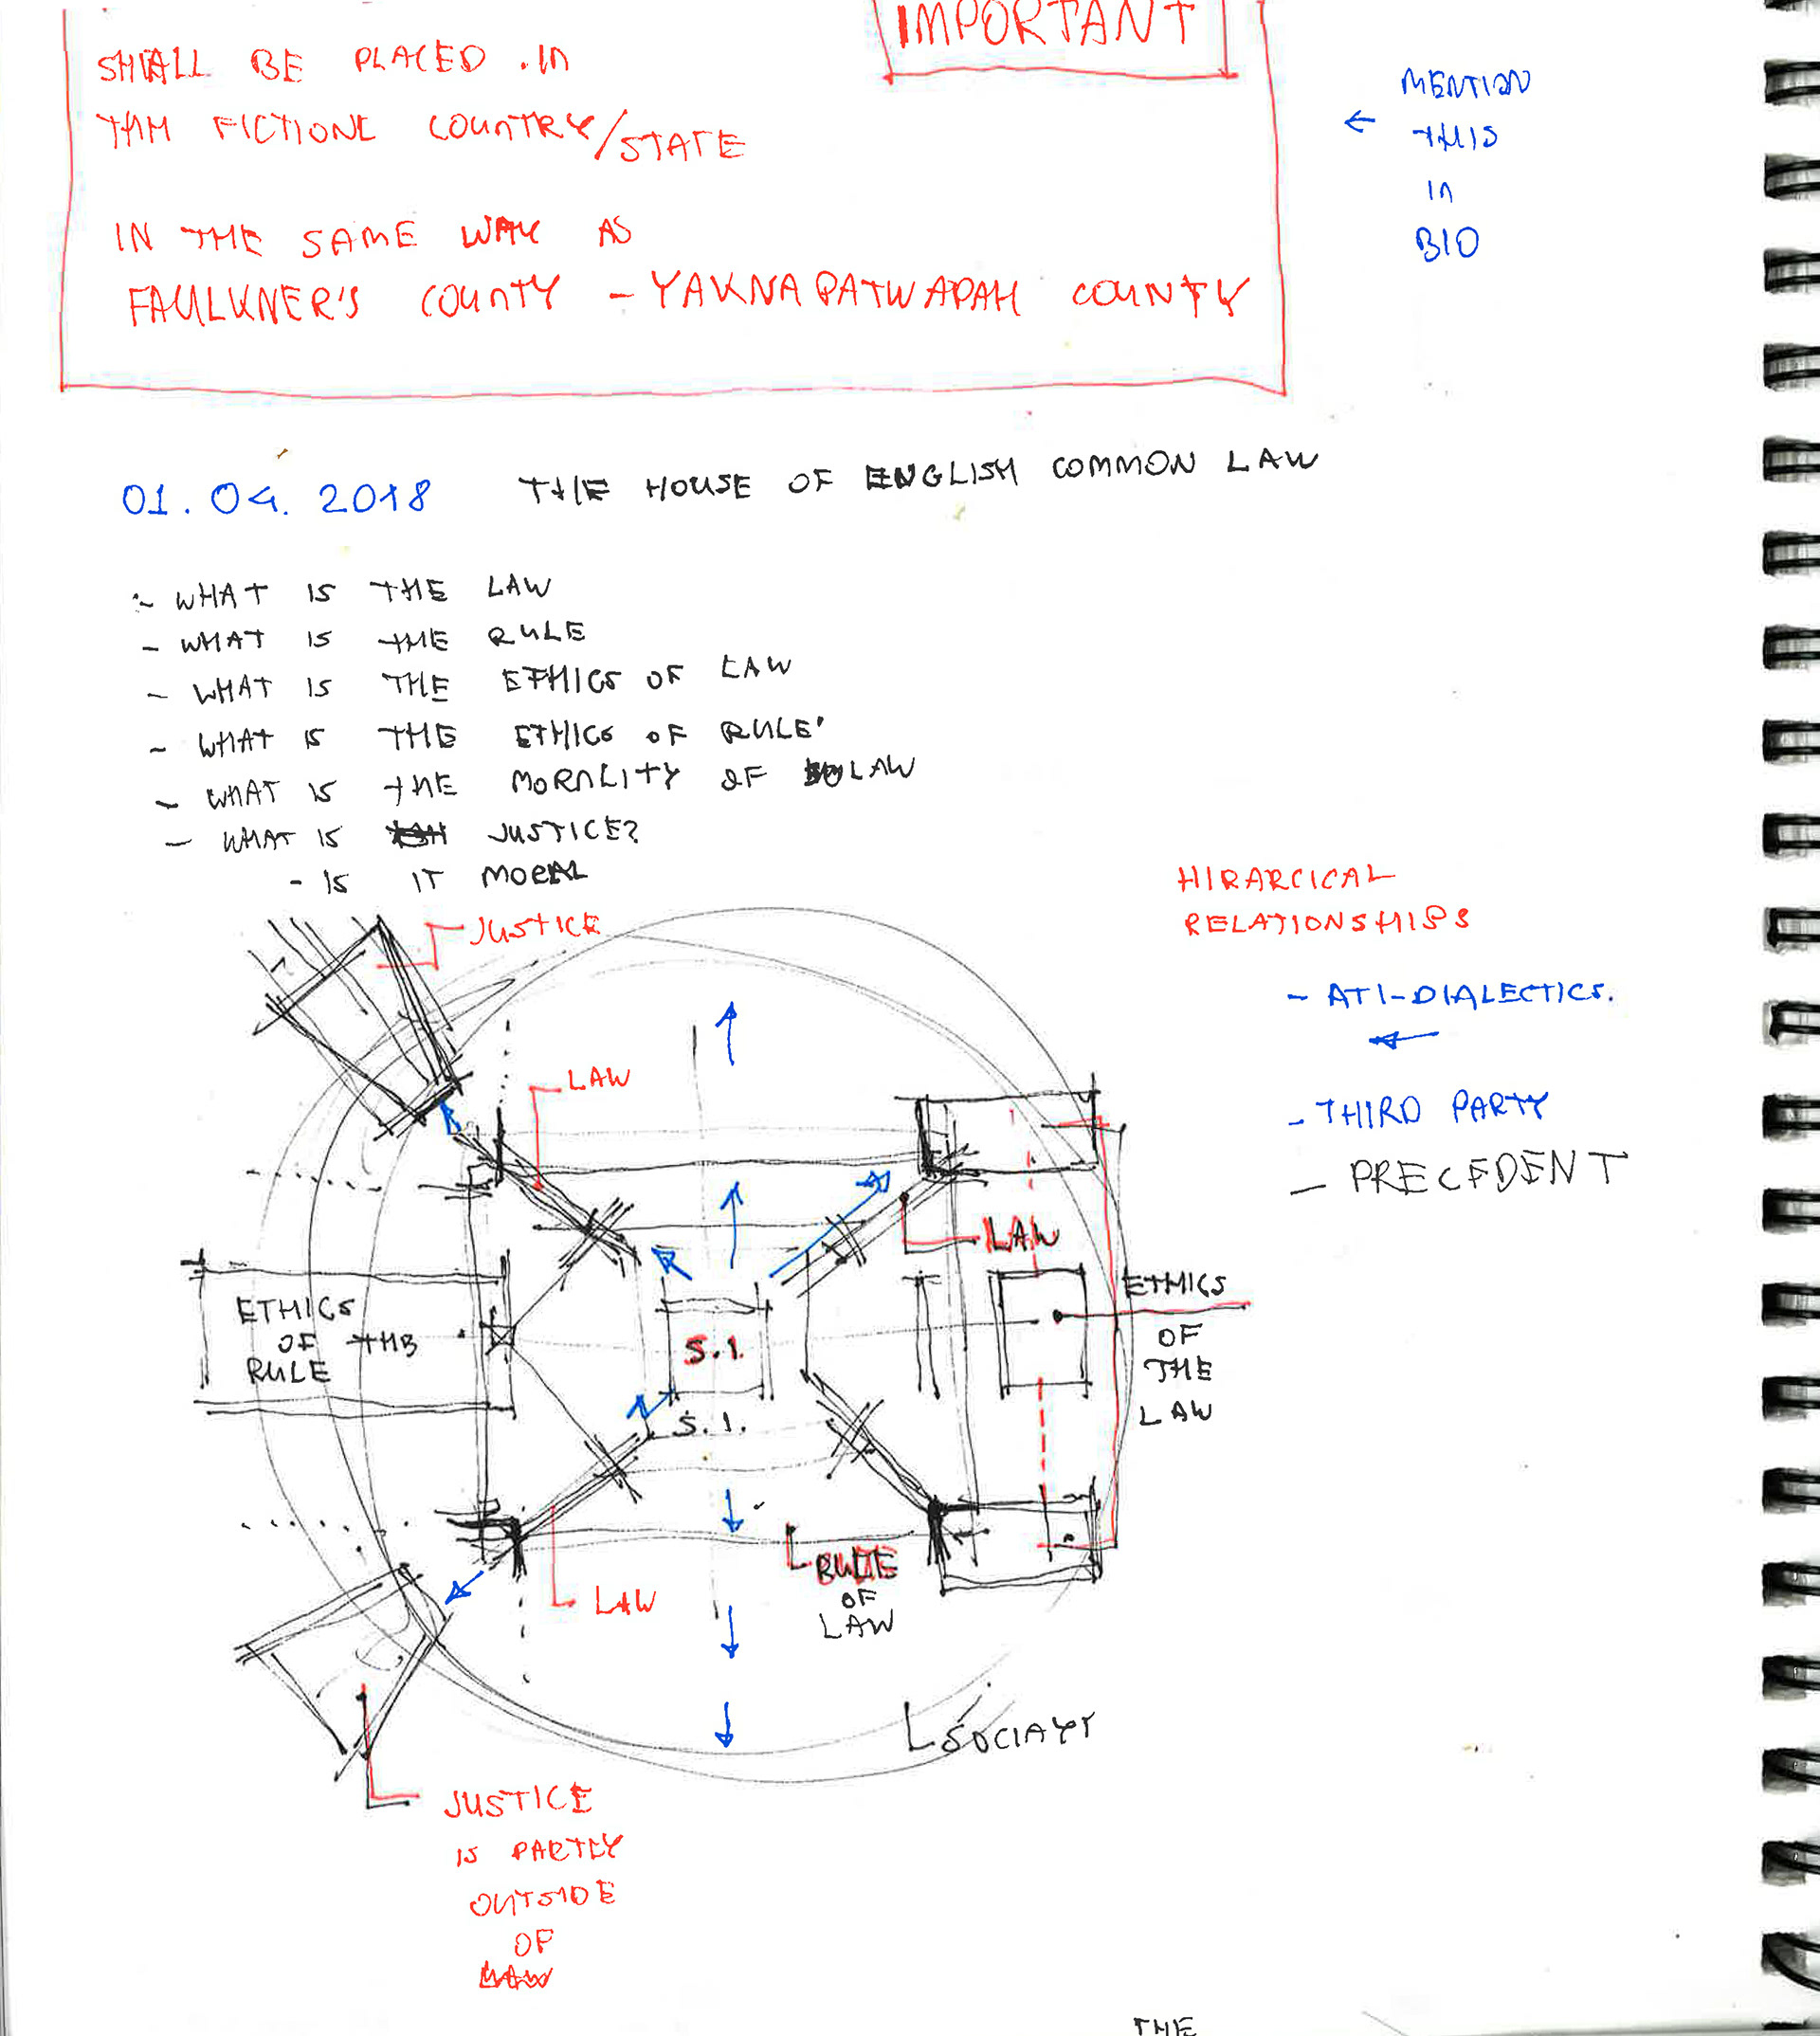 IMPORTANT
SHALL BE PLACED IN
FICTIONL COUNTRY/STATE
IN THE SAME WAY AS
FAULKNER'S COUNTY - YAKNAPATWAPAH COUNTY
← MENTION
THIS
IN
BIO
01.04.2018 THE HOUSE OF ENGLISH COMMON LAW
- WHAT IS THE LAW
- WHAT IS THE RULE
- WHAT IS THE ETHICS OF LAW
- WHAT IS THE ETHICS OF RULE
- WHAT IS THE MORALITY OF LAW
- WHAT IS JUSTICE?
- IS IT MORAL
HIRARCICAL
RELATIONSHIPS
- ATI-DIALECTICS.
←
- THIRD PARTY
- PRECEDENT
JUSTICE
LAW
LAW
ETHICS
OF THE
RULE
S.I.
S.I.
ETHICS
OF
THE
LAW
LAW
RULE
OF
LAW
SOCIATY
JUSTICE
IS PARTLY
OUTSIDE
OF
LAW
THE